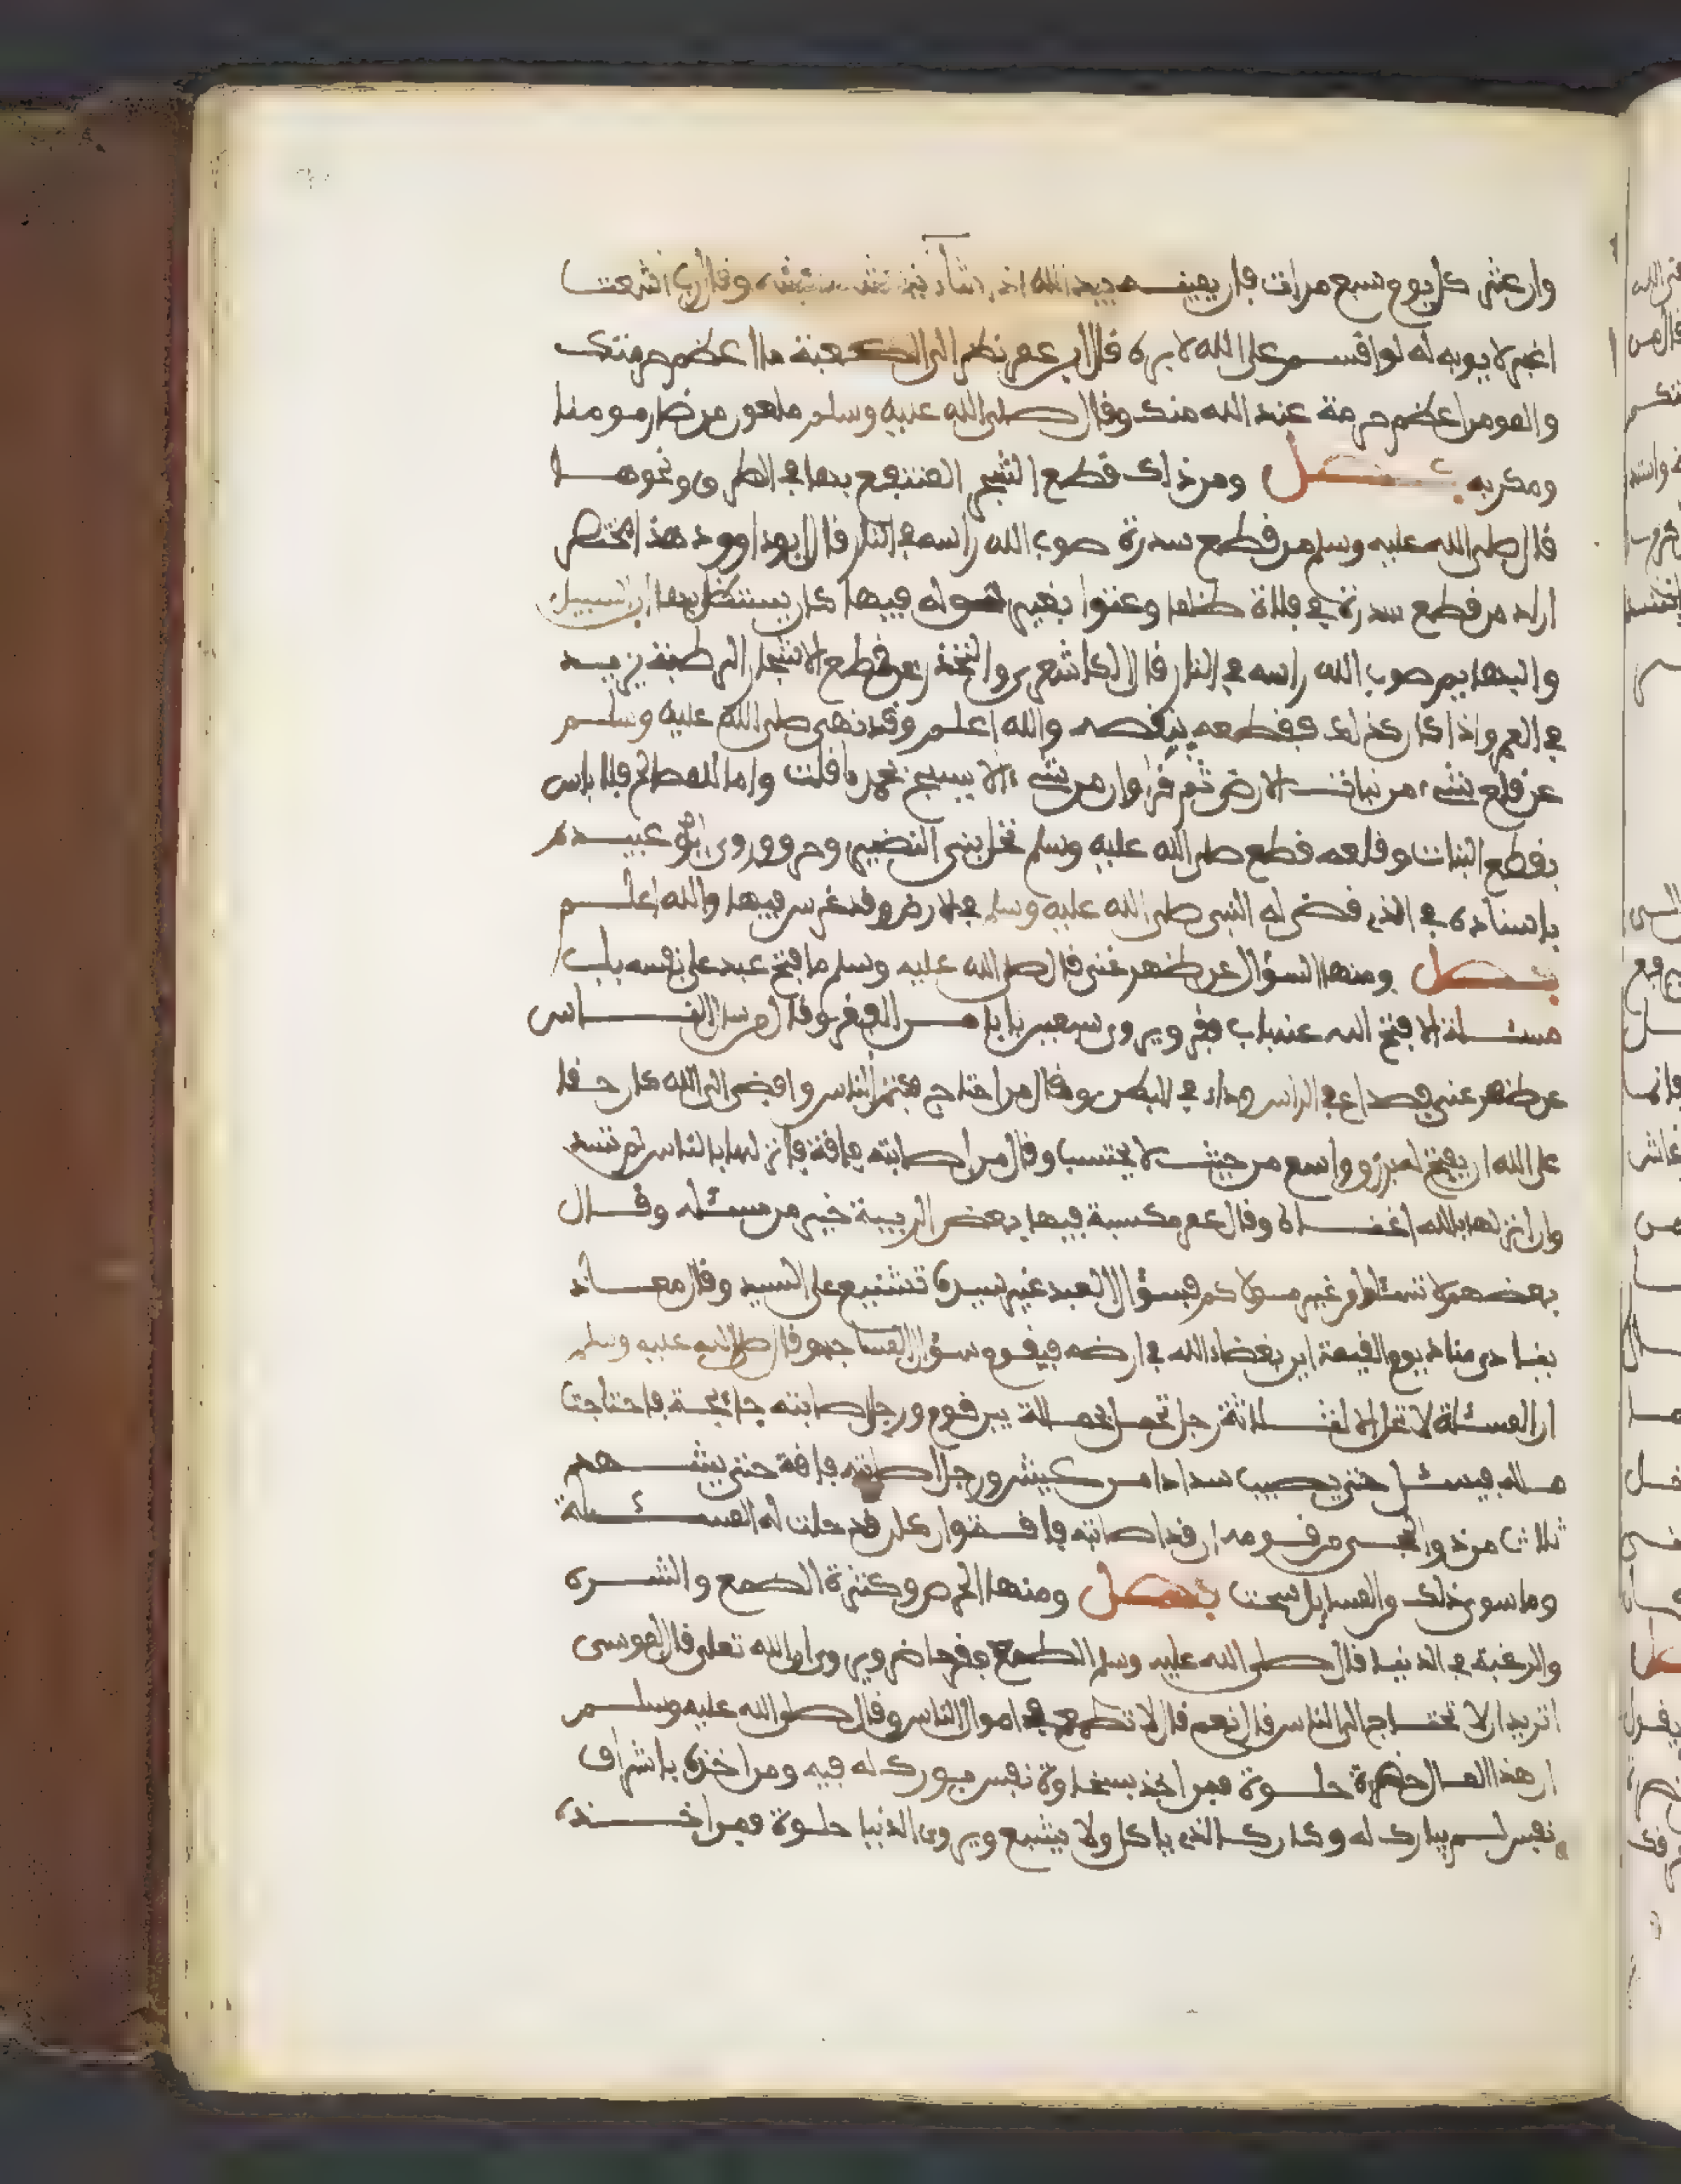 وان عثر كل يوم سبع مرات فان يمينه بيد الله اذا شاء وقال رب اشعث
اغبر لا يوبه له لو اقسم على الله لابره قال ابن عمر نظر الى الكعبة ما اعظم حرمتك
والمومن اعظم حرمة عند الله منك وقال صلى الله عليه وسلم ملعون من ضار مومنا
ومكر به فصل ومن ذلك قطع الشجر المنتفع بها في الطرق ونحوها
قال صلى الله عليه وسلم من قطع سدرة صوب الله راسه في النار قال ابو داوود هذا مختصر
اراد من قطع سدرة في فلاة ظلما وعثوا بغير حق له فيها كان يستظل بها ابن السبيل
والبهايم صوب الله راسه في النار قال الكاشعري والتحذر عن قطع الاشجار التي طنه يزيد
في العمر واذا كان كذلك فقطعه ينقصه والله اعلم وقد نهى صلى الله عليه وسلم
عن قلع شيء من نبات الارض ثم قرا وان من شيء الا يسبح بحمده قلت واما للمصالح فلا باس
بقطع النبات وقلعه قطع صلى الله عليه وسلم نخل بني النضير وحرق وروى ابو عبيدة
باسناده في الذي قضى له النبي صلى الله عليه وسلم في الارض وقد غرس فيها والله اعلم
فصل ومنها السؤال عن ظهر غنى قال صلى الله عليه وسلم ما فتح عبد على نفسه باب
مسئلة الا فتح الله عنه باب فقر ويروى سبعين بابا من الفقر وقال من سال الناس
عن ظهر غنى فصداع في الراس وداء في البطن وقال من احتاج فكتم الناس وافضى الى الله كان حقا
على الله ان يفتح له برزق واسع من حيث لا يحتسب وقال من اصابته فاقة فانزلها بالناس لم تسد
وان انزلها بالله اغناه وقال عمر مكسبة فيها بعض الريبة خير من مسئلة وقال
بعضهم لا تسئلوا غير مولاكم فسؤال العبد غير سيده تشنيع على السيد وقال معاذ
ينادي مناد يوم القيمة اين بغضاء الله في ارضه فيقوم سؤال المساجد وقال صلى الله عليه وسلم
ان المسئلة لا تحل الا لثلاثة رجل تحمل بحمالة بين قوم ورجل اصابته جائحة فاجتاحت
ماله فيسئل حتى يصيب سدادا من عيش ورجل اصابته فاقة حتى يشهد
ثلاث من ذوي الحجى من قومه ان قد اصابته فاقة وان كان قد حلت له المسئلة
وما سوى ذلك من المسايل سحت فصل ومنها الحرص وكثرة الطمع والشره
والرغبة في الدنيا قال صلى الله عليه وسلم الطمع فقر حاضر ويروى ان الله تعلى قال لموسى
اتريد ان لا تحتاج الى الناس قال نعم قال لا تطمع في اموال الناس وقال صلى الله عليه وسلم
ان هذا المال خضرة حلوة فمن اخذ بسخاوة نفس بورك له فيه ومن اخذه باشراف
نفس لم يبارك له وكان كالذي ياكل ولا يشبع ويروى الدنيا حلوة فمن اخذه